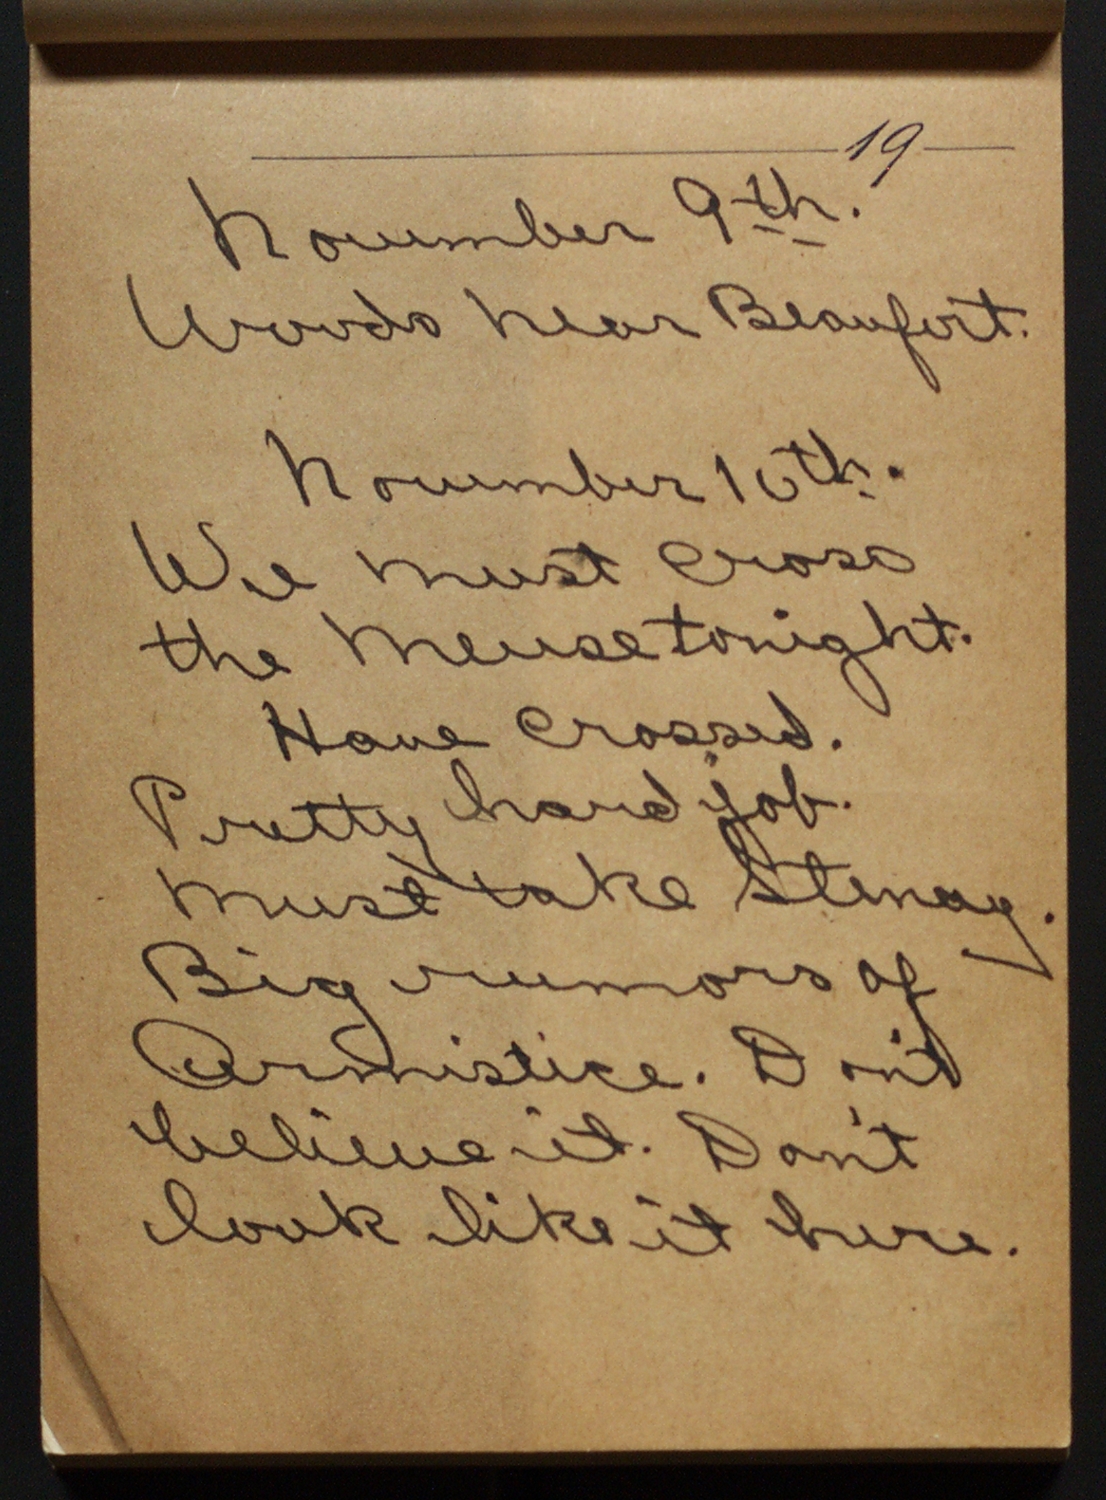 19
November 9th.
Woods near Beaufort.
November 10th.
We must cross
the Meuse tonight.
Have crossed.
Pretty hard job.
Must take Stenay.
Big rumors of
Armistice. Don't
believe it. Don't
look like it here.